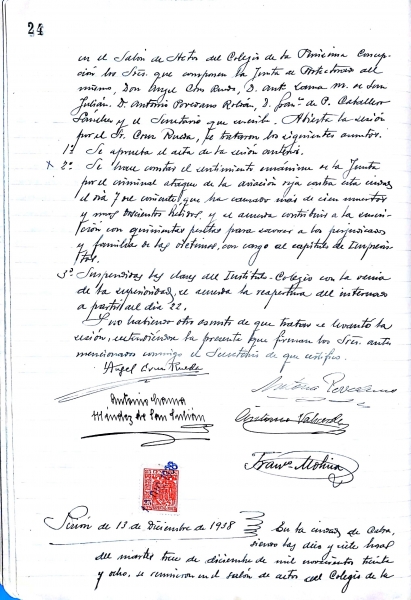 24
en el Salón de Actos del Colegio de la Purísima Concep-
ción los Sres. que componen la Junta de Protectorado del
mismo, Don Angel Cruz Rueda, D. Antº Lama M. de San
Julián, D. Antonio Povedano Roldán, D. Franº de P. Caballero
Sánchez y el Secretario que suscribe. Abierta la sesión
por el Sr. Cruz Rueda, se trataron los siguientes asuntos.
1º Se aprueba el acta de la sesión anterior.
x 2º Se hace constar el sentimiento unánime de la Junta
por el criminal ataque de la aviación roja contra esta ciudad
el día 7 del corriente, que ha causado más de cien muertos
y unos doscientos heridos, y se acuerda contribuir a la suscrip-
ción con quinientas pesetas para socorrer a los perjudicados
y familias de las víctimas, con cargo al capítulo de Imprevis-
tos.
3º Suspendidas las clases del Instituto-Colegio con la venia
de la superioridad, se acuerda la reapertura del internado
a partir del día 22.
Y no habiendo otro asunto de que tratar se levantó la
sesión, extendiendo la presente que firman los Sres. ante
mencionados conmigo el Secretario de que certifico.
Angel Cruz Rueda
Antonio Povedano
Antonio Lama
Méndez de San Julián
Antonio Valverde
Franº Molina
Sesión de 13 de Diciembre de 1938
En la ciudad de Cabra,
siendo las diez y siete horas
del martes trece de diciembre de mil novecientos treinta
y ocho, se reunieron en el salón de actos del Colegio de la